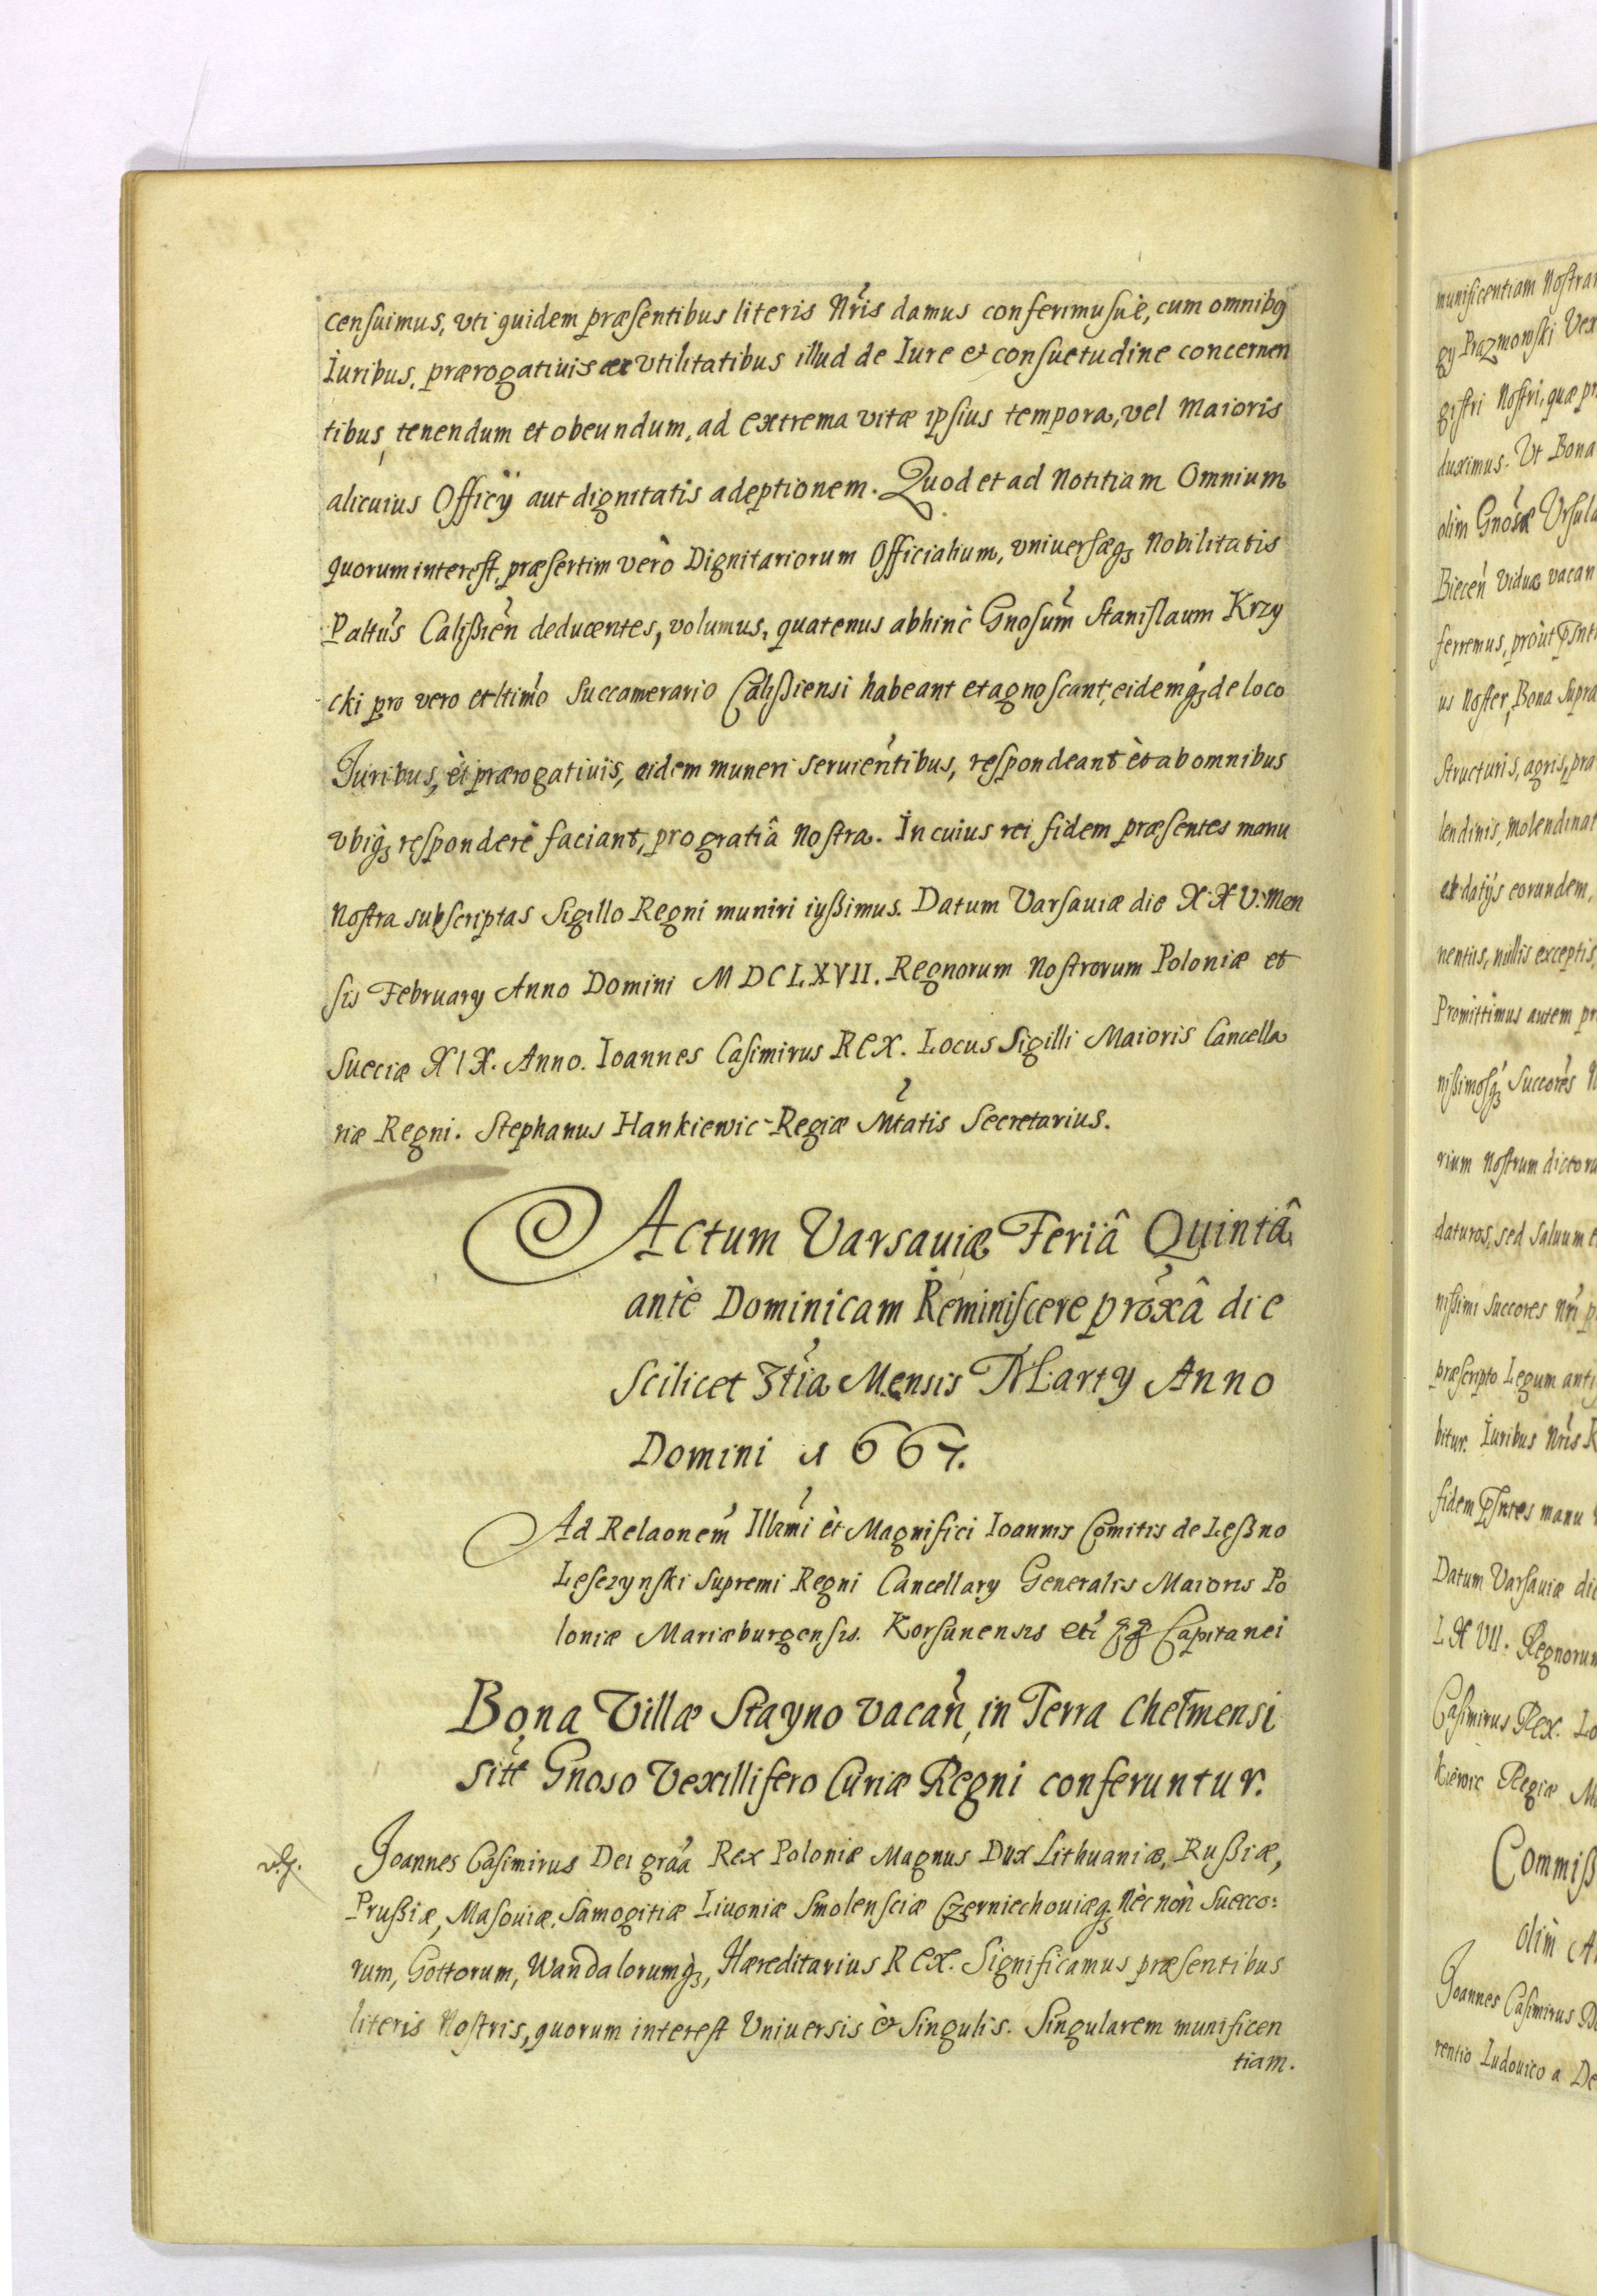 censuimus, vti quidem præsentibus literis Nris damus conferimusuè, cum omnibq
Iuribus, prærogatiuis ac vtilitatibus illud de Iure et consuetudine concernen
tibus, tenendum et obeundum, ad extrema vitæ ipsius tempora, vel Maioris
alicuius Officÿ aut dignitatis adeptionem. Quod et ad Notitiam Omnium
quorum interest, præsertim verò Dignitariorum Officialium, vniuersæq; Nobilitatis
Paltus Calißien deducentes, volumus, quatenus abhinc Gnosum Stanislaum Krzy
cki pro vero et ltimo Succamerario Calißiensi habeant et agnoscant, eidemq; de loco
Iuribus, et prærogatiuis, eidem muneri seruientibus, respondeant èt ab omnibus
vbiq; responderè faciant, pro gratiâ Nostra. In cuius rei fidem præsentes manu
Nostra subscriptas Sigillo Regni muniri iußimus. Datum Varsauiæ die XXV. Men
sis February Anno Domini MDCLXVII. Regnorum Nostrorum Poloniæ et
Sueciæ XIX. Anno. Ioannes Casimirus REX. Locus Sigilli Maioris Cancella
riæ Regni. Stephanus Hankiewic Regiæ Mtatis Secretarius.
Actum Varsauiæ Feriâ Quintâ
antè Dominicam Reminiscere proxâ die
Scilicet 3tia Mensis Marty Anno
Domini 1667.
Ad Relaonem Illrmi èt Magnifici Ioannis Comitis de Leßno
Lesczynski Supremi Regni Cancellary Generalis Maioris Po
loniæ Mariæburgensis. Korsunensis etc Capitanei
Bona Villæ Stayno vacan, in Terra Chełmensi
sitt Gnoso Vexillifero Curiæ Regni conferuntur.
Joannes Casimirus Dei graa Rex Poloniæ Magnus Dux Lithuaniæ, Rußiæ,
Prußiæ, Masouiæ, Samogitiæ Liuoniæ Smolensciæ Czerniechouiæq; Nèc nòn Suecco:
rum, Gottorum, Wandalorumq;, Hæreditarius REX. Significamus præsentibus
literis Nostris, quorum interest Vniuersis & Singulis. Singularem munificen
tiam.
munificentiam Nostram
gy Prazmowski Vex
gistri Nostri, quæ pr
duximus. Vt Bona
olim Gnosæ Vrsula
Biecen Viduæ vacan
ferremus, prout Psnti
us Noster, Bona Supra
Structuris, agris, pra
lendinis, Molendinat
ac datÿs eorundem,
nentus, nullis exceptis,
Promittimus autem pr
nißimosq; Succores N
rium Nostrum dictoru
daturos, sed saluum e
nißimi Succores Nri p
præscripto Legum anti
bitur. Iuribus Nris R
fidem Psntes manu
Datum Varsauiæ die
LXVII. Regnorum
Casimirus Rex. Lo
kiewic Regiæ M
Commiß
olim A
Joannes Casimirus D
rentio Ludouico a De